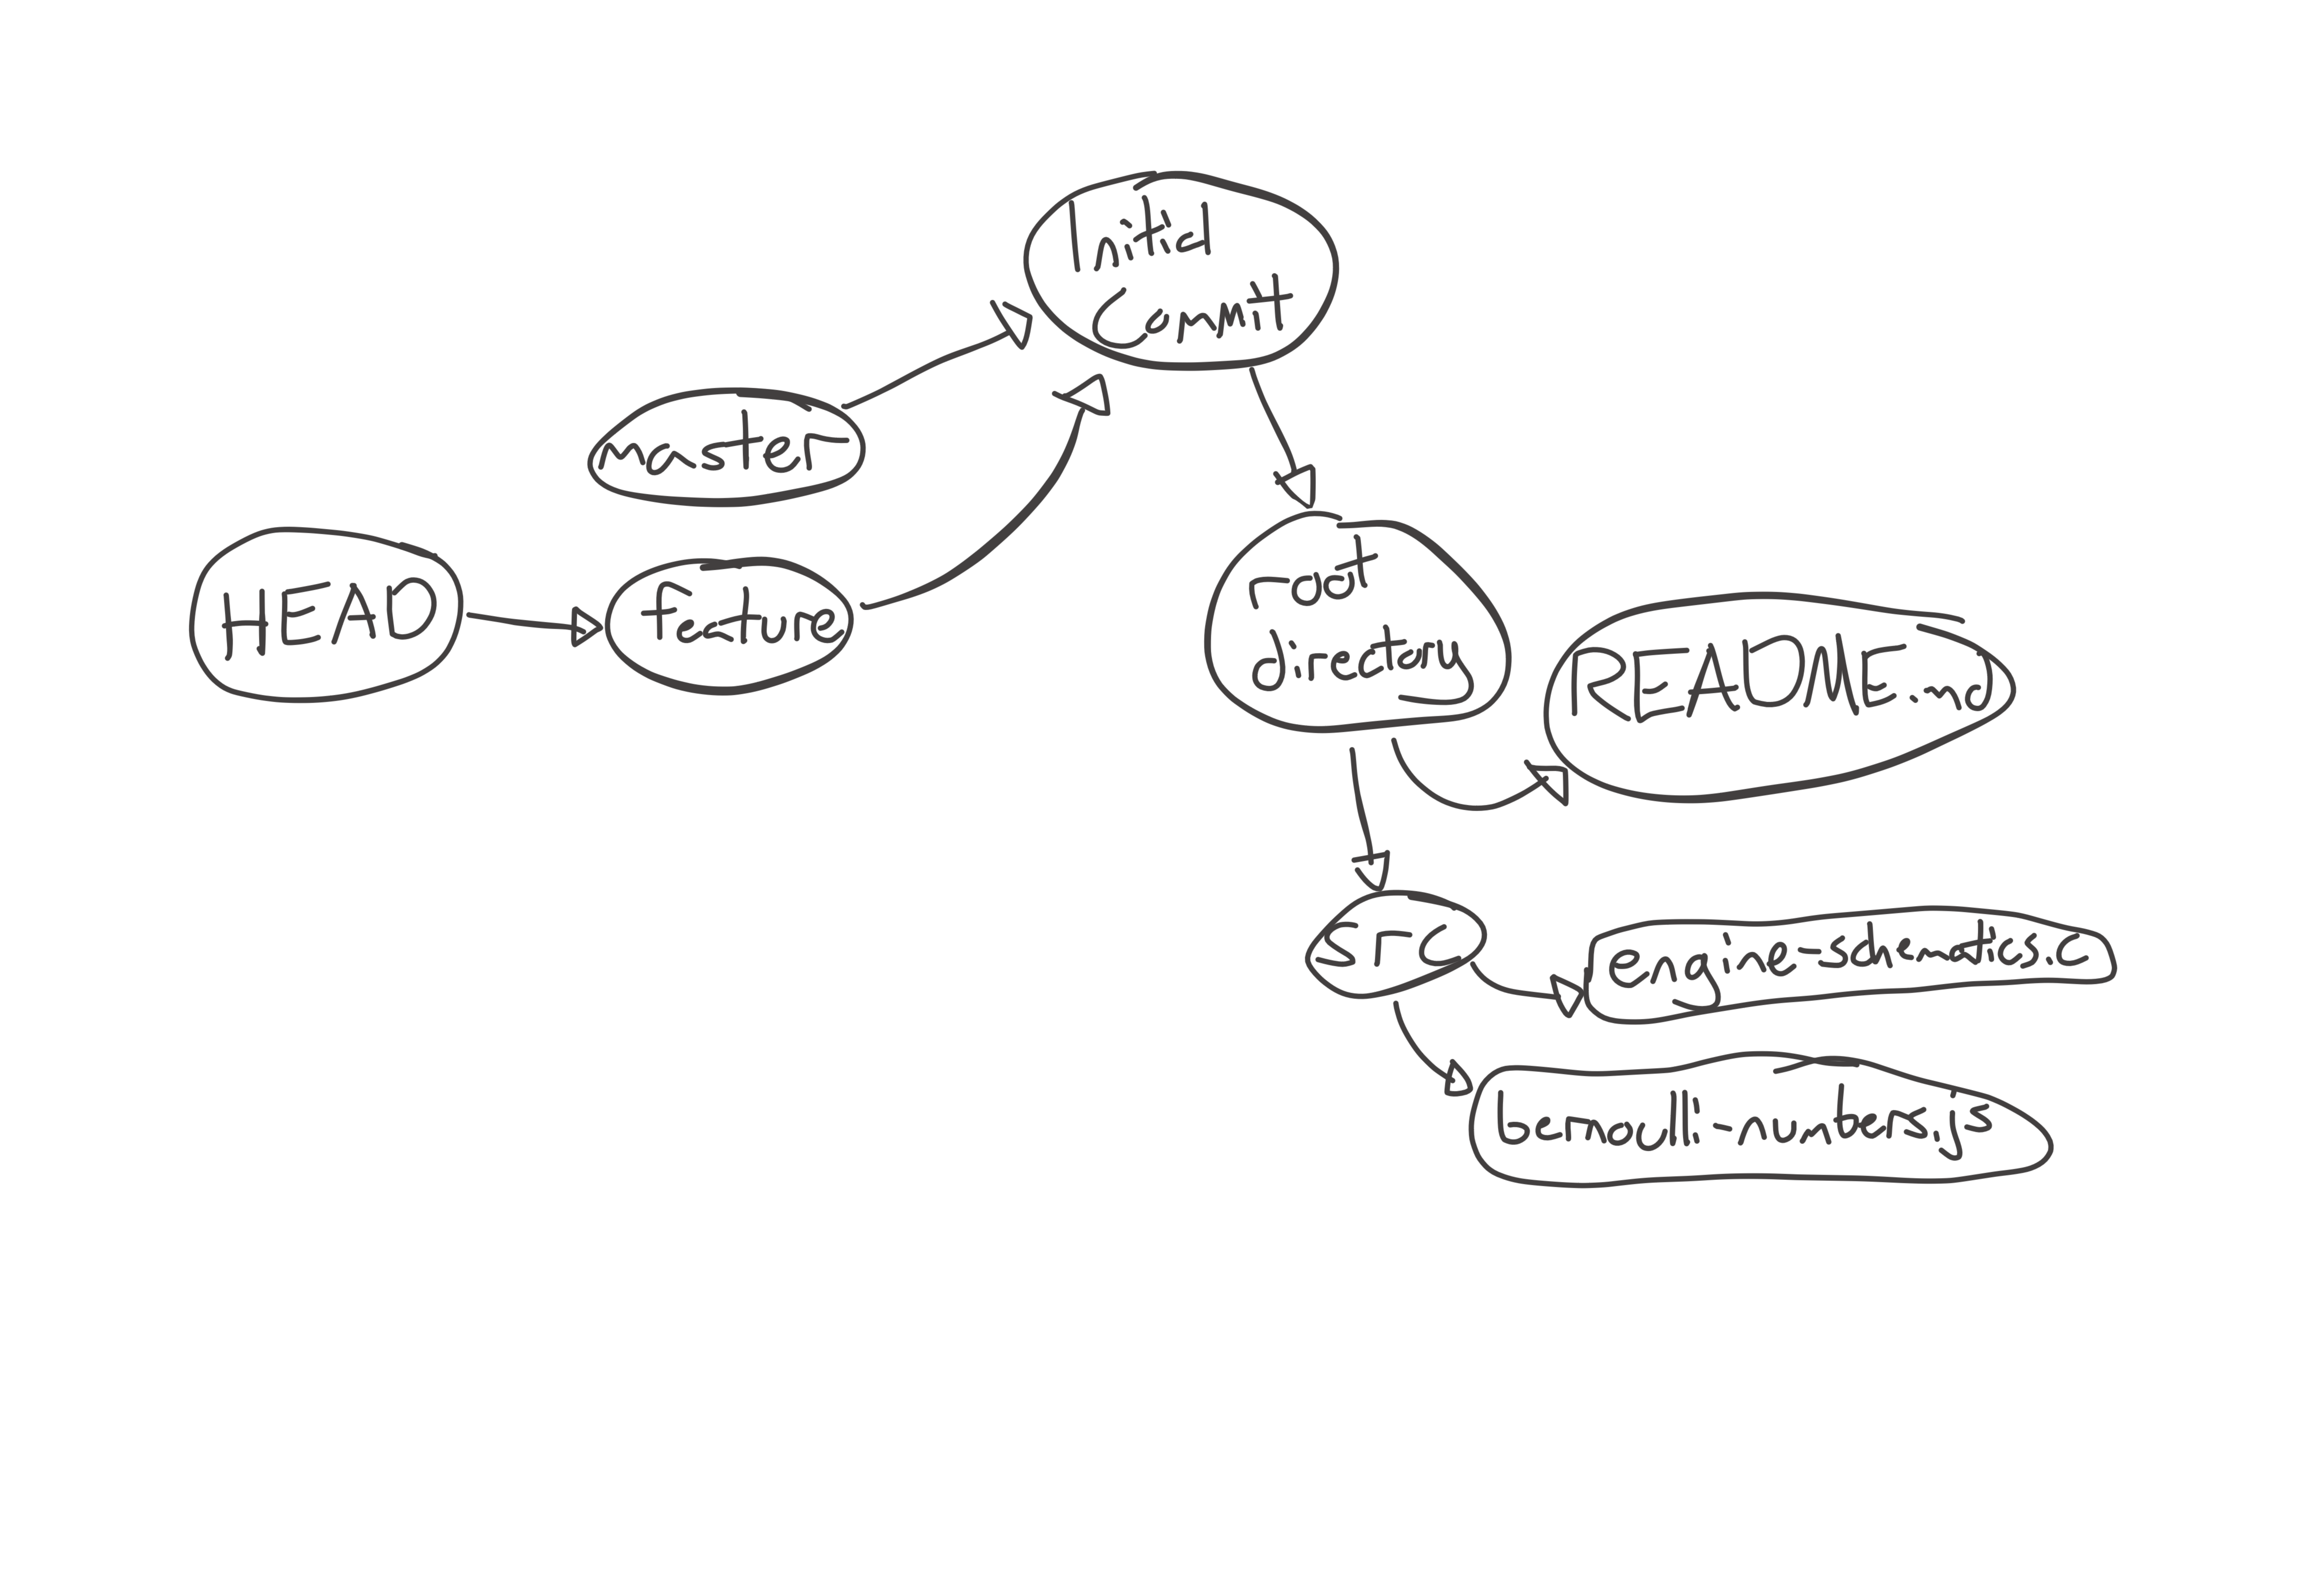 Initial
Commit
master
HEAD
feature
root
directory
README.md
src
engine-schematics.c
bernoulli-numbers.js